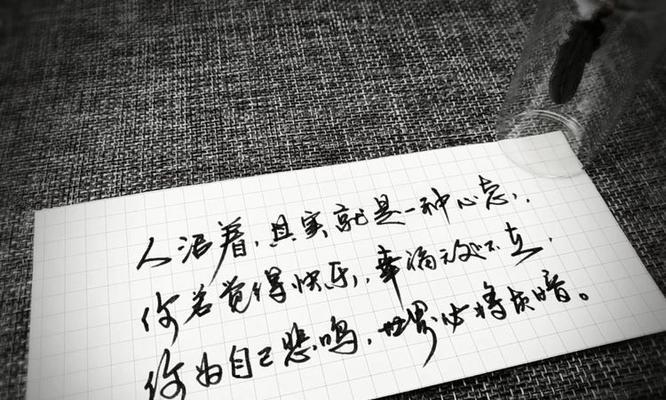 人活着,其实就是一种心态,
你若觉得快乐,幸福无处不在,
你为自己悲鸣,世界必将灰暗。